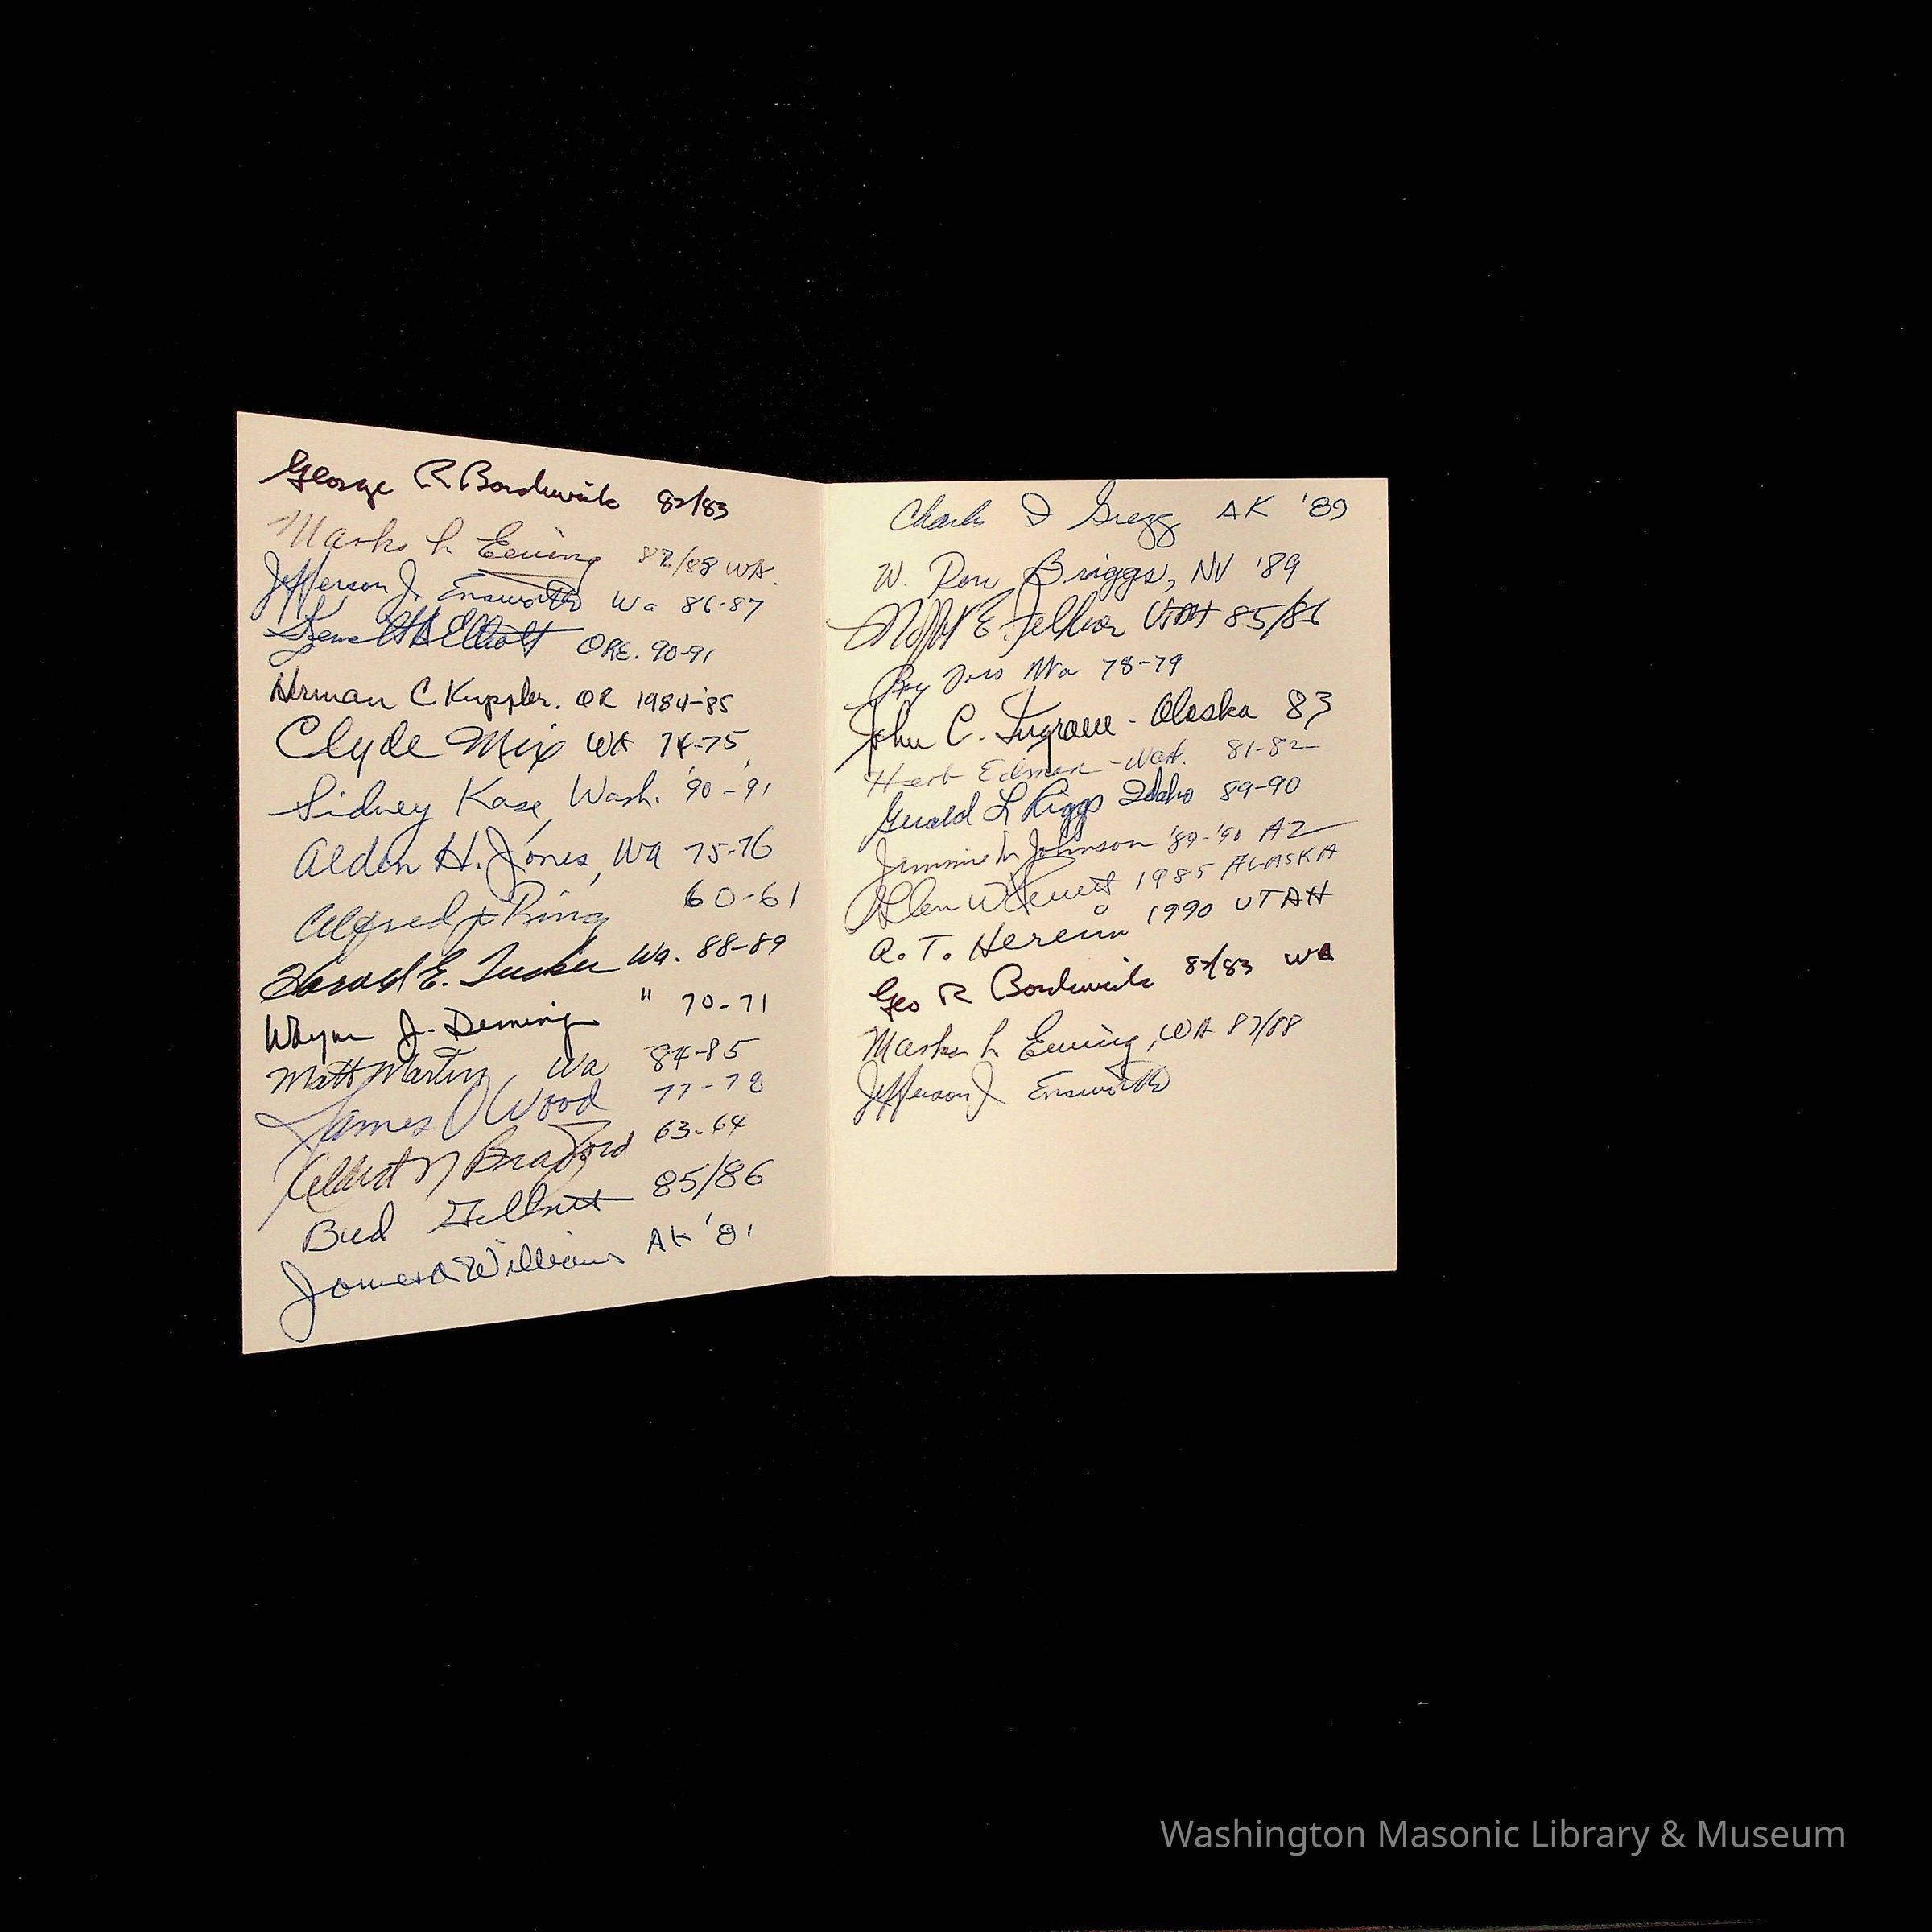 George R Bordewick 82/83
Marks L Ewing 87/88 WA.
Jefferson J. Ensworth Wa 86-87
Kenneth Elliott ORE. 90-91
Herman C Kuppler. OR 1984-'85
Clyde Mix WA 74-75
Sidney Kase, Wash. '90-'91
Alden H. Jones, Wa 75-76
Alfred J Ring 60-61
Harold E. Tucker Wa. 88-89
Wayne J. Deming " 70-71
Matt Martin, Wa 84-85
James Wood 77-78
Albert N Bradford 63-64
Bud 85/86
James A Williams AK '81
Charles D Gregg AK '89
W. Don Briggs, NV '89
E. Utah 85/86
Roy Wa 78-79
John C. Ingram - Alaska 83
Herb Edman - Wash. 81-82
Gerald L Riggs Idaho 89-90
Jimmie Johnson '89-'90 AZ
Allen W Hewitt 1985 ALASKA
A. T. 1990 UTAH
Geo R Bordewick 82/83 WA
Marks L Ewing, WA 87/88
Jefferson J. Ensworth
Washington Masonic Library & Museum